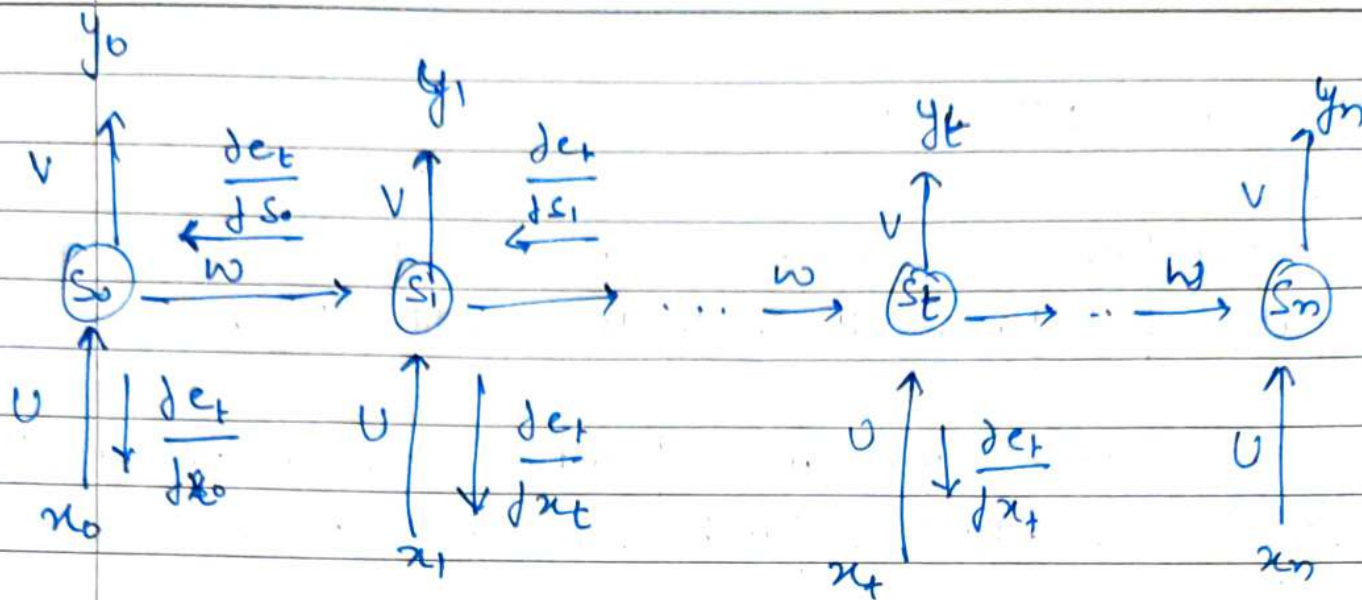 y₀ y₁ yt yn
V ∂et/∂s₀ V ∂et/∂s₁ V V
S₀ W S₁ .... W St .. W Sn
U ∂et/∂x₀ U ∂et/∂xt U ∂et/∂xt U
x₀ x₁ xt xn